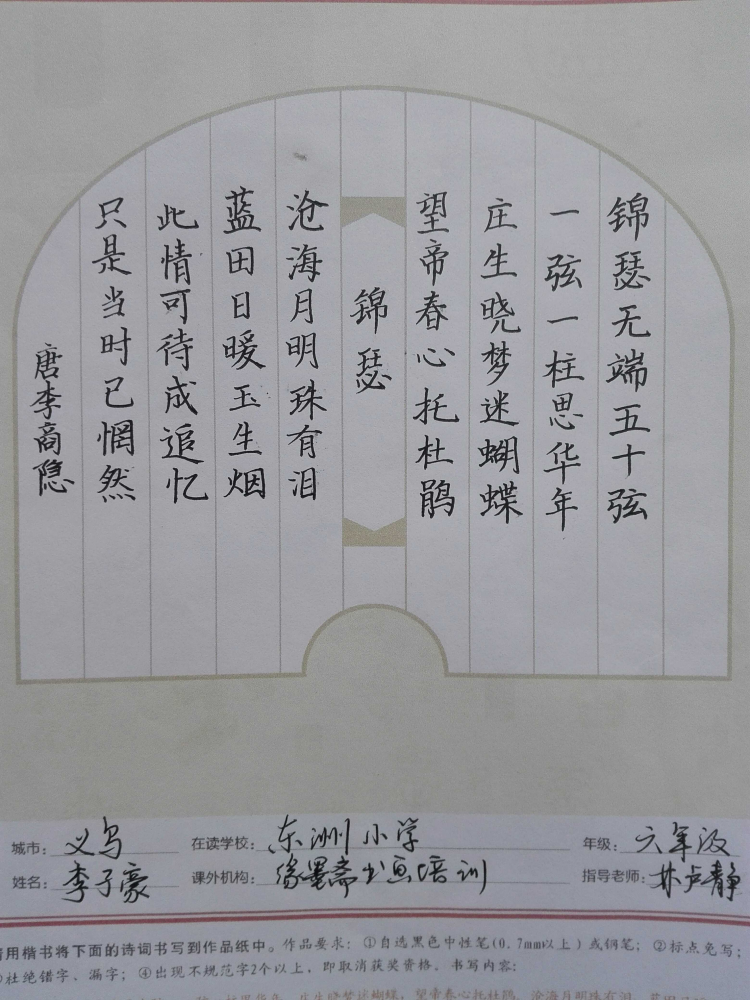 锦瑟无端五十弦
一弦一柱思华年
庄生晓梦迷蝴蝶
望帝春心托杜鹃
锦瑟
沧海月明珠有泪
蓝田日暖玉生烟
此情可待成追忆
只是当时已惘然
唐李商隐
城市：义乌 在读学校：东洲小学 年级：六年级
姓名：李子豪 课外机构：缘墨斋书画培训 指导老师：林卢静
请用楷书将下面的诗词书写到作品纸中。作品要求：①自选黑色中性笔(0.7mm以上)或钢笔；②标点免写；
③杜绝错字、漏字；④出现不规范字2个以上，即取消获奖资格。书写内容：
一弦一柱思华年。庄生晓梦迷蝴蝶，望帝春心托杜鹃。沧海月明珠有泪，蓝田